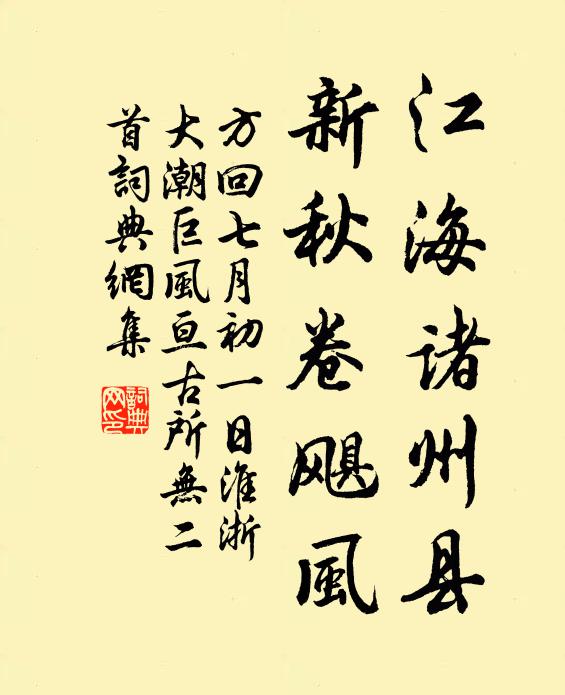 江海诸州县
新秋卷颶風
方回七月初一日淮浙
大潮巨風亘古所無二
首詞典網集
詞典网印